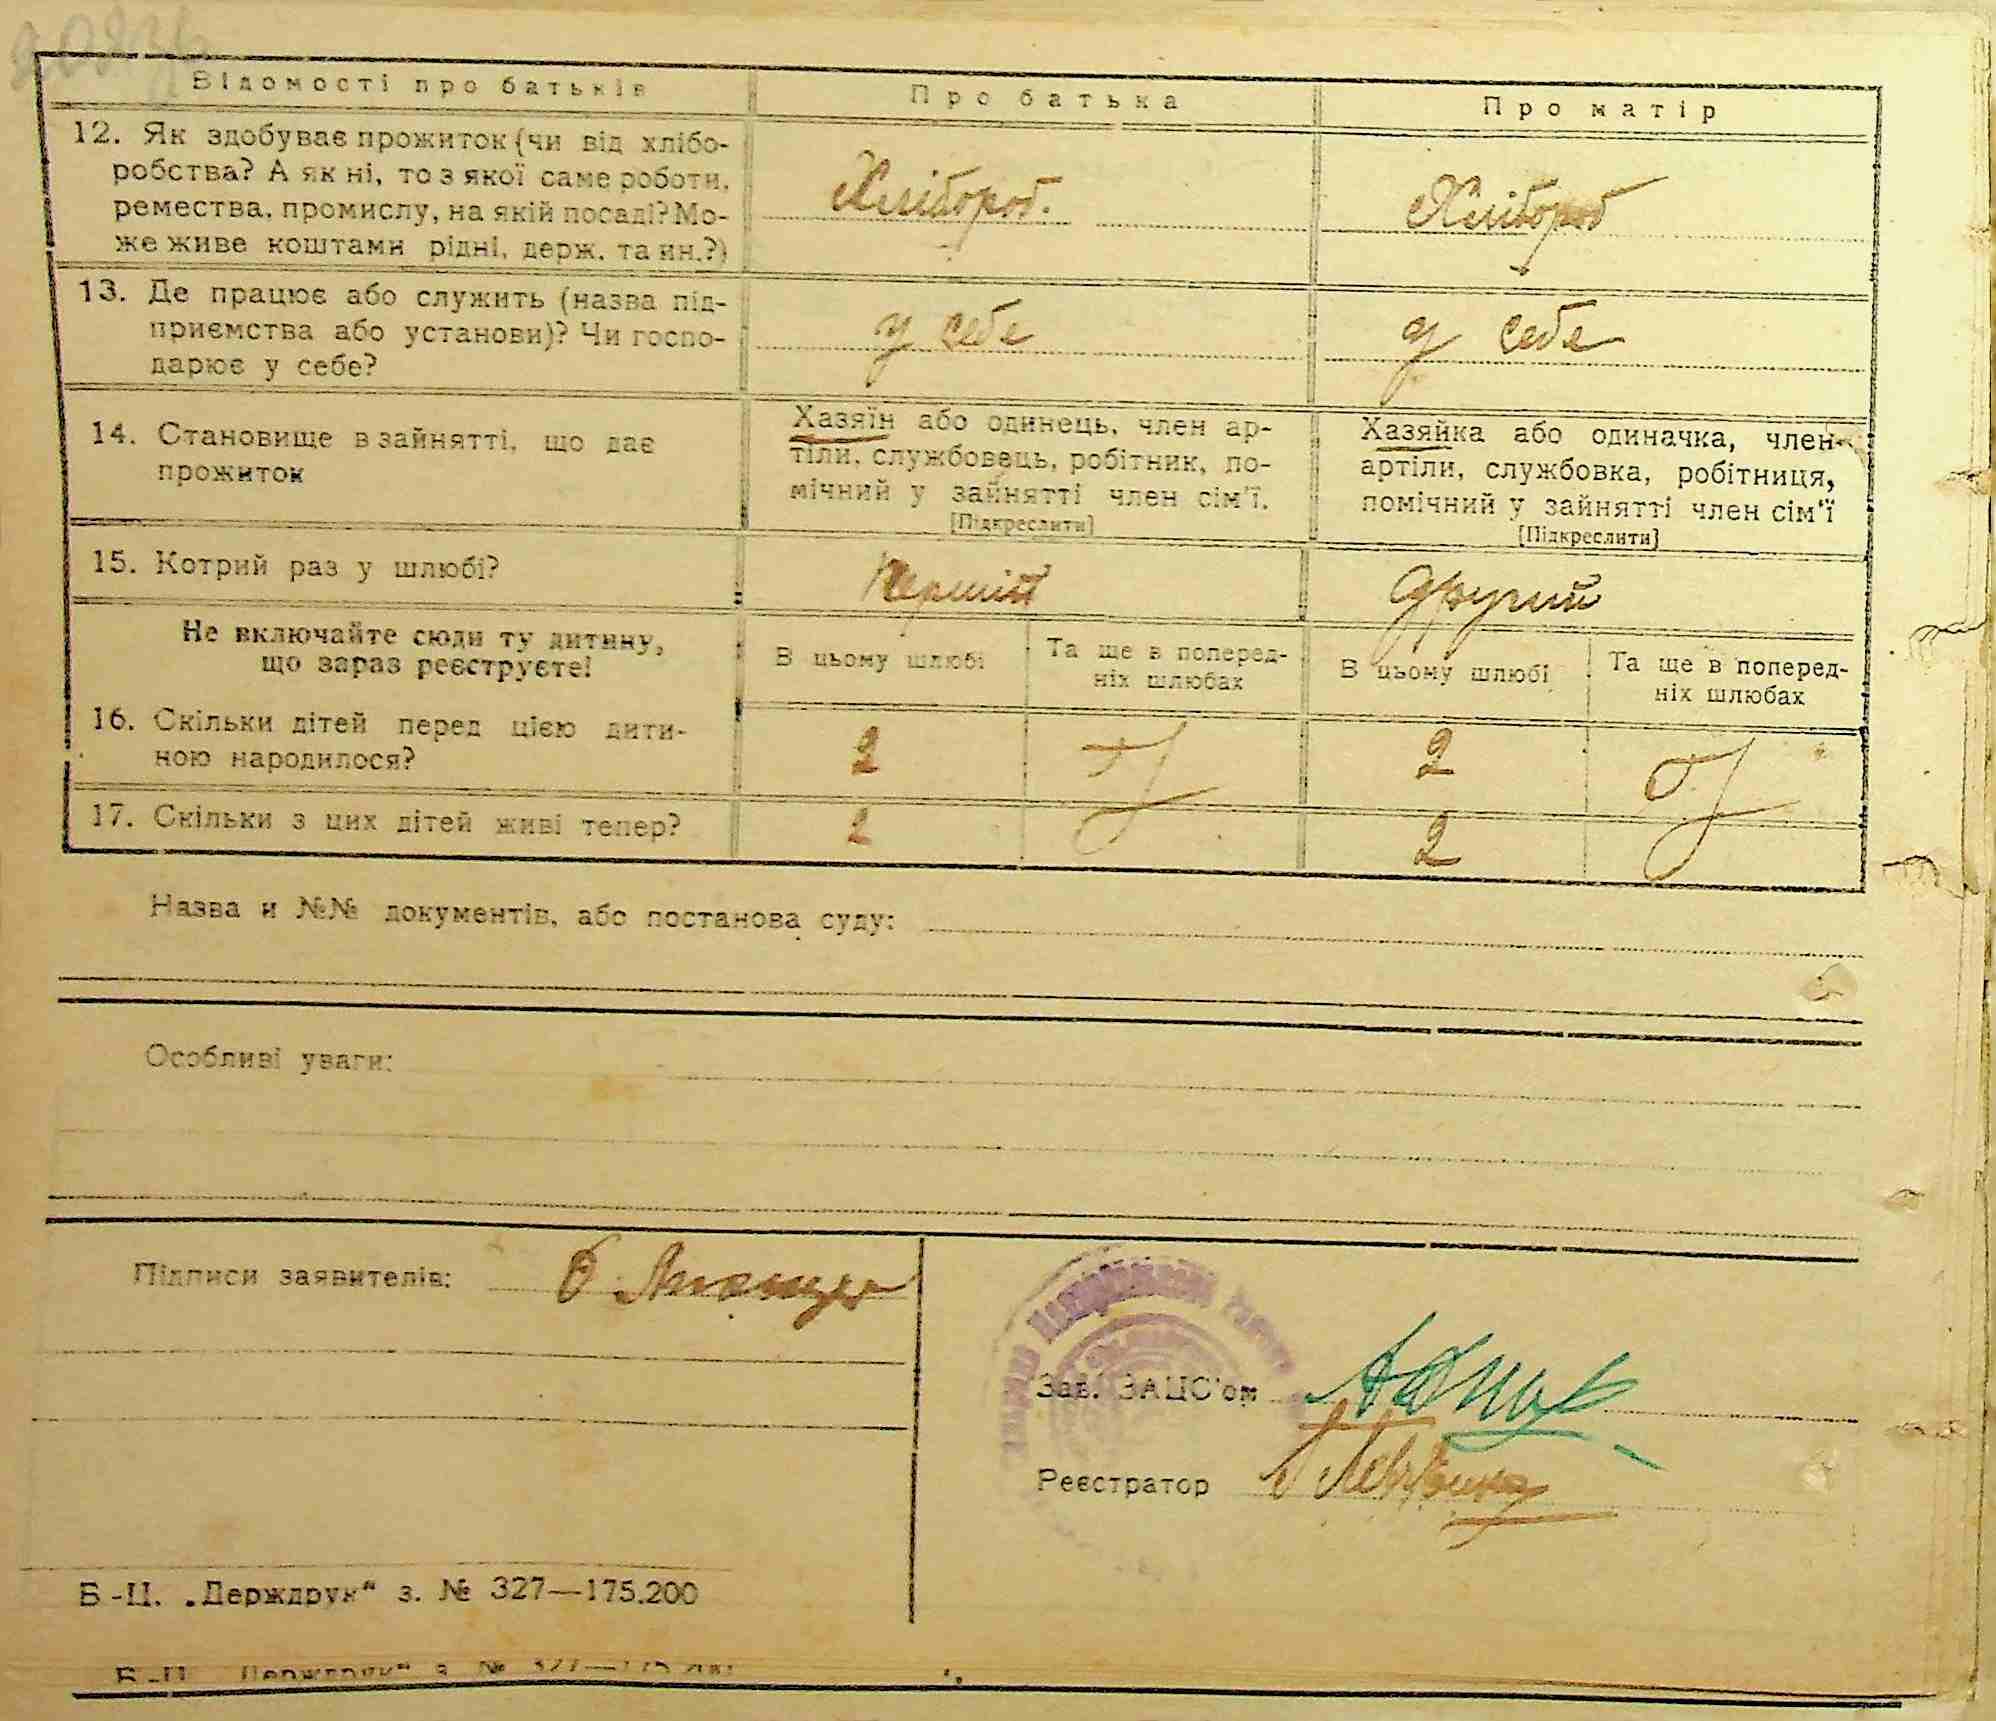 Відомості про батьків
Про батька
Про матір
12. Як здобуває прожиток (чи від хлібо-
робства? А як ні, то з якої саме роботи,
ремества, промислу, на якій посаді? Мо-
же живе коштами рідні, держ. та ин.?)
Хлібороб.
Хлібороб
13. Де працює або служить (назва під-
приємства або установи)? Чи госпо-
дарює у себе?
у себе
у себе
14. Становище в зайнятті, що дає
прожиток
Хазяїн або одинець, член ар-
тіли, службовець, робітник, по-
мічний у зайнятті член сім'ї.
[Підкреслити]
Хазяйка або одиначка, член
артіли, службовка, робітниця,
помічний у зайнятті член сім'ї
[Підкреслити]
15. Котрий раз у шлюбі?
Перший
другий
Не включайте сюди ту дитину,
що зараз реєструєте!
В цьому шлюбі
Та ще в поперед-
ніх шлюбах
В цьому шлюбі
Та ще в поперед-
ніх шлюбах
16. Скільки дітей перед цією дити-
ною народилося?
2
2
17. Скільки з цих дітей живі тепер?
2
2
Назва и №№ документів, або постанова суду:
Особливі уваги:
Підписи заявителів:
Зав. ЗАЦС'ом
Реєстратор
Б-Ц. „Держдрук“ з. № 327—175.200
Б-Ц. „Держдрук“ з. № 327—175.200